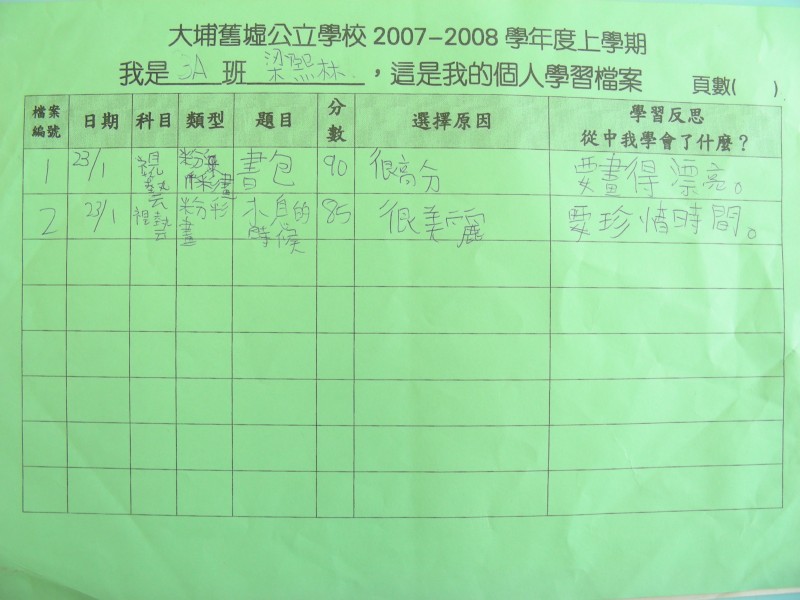 大埔舊墟公立學校 2007-2008 學年度上學期
我是 3A 班 梁熙林，這是我的個人學習檔案 頁數( )
檔案編號 日期 科目 類型 題目 分數 選擇原因 學習反思 從中我學會了什麼？
1 23/1 視藝 粉彩畫 書包 90 很高分 要畫得漂亮。
2 23/1 視藝 粉彩畫 休息的時候 85 很美麗 要珍惜時間。